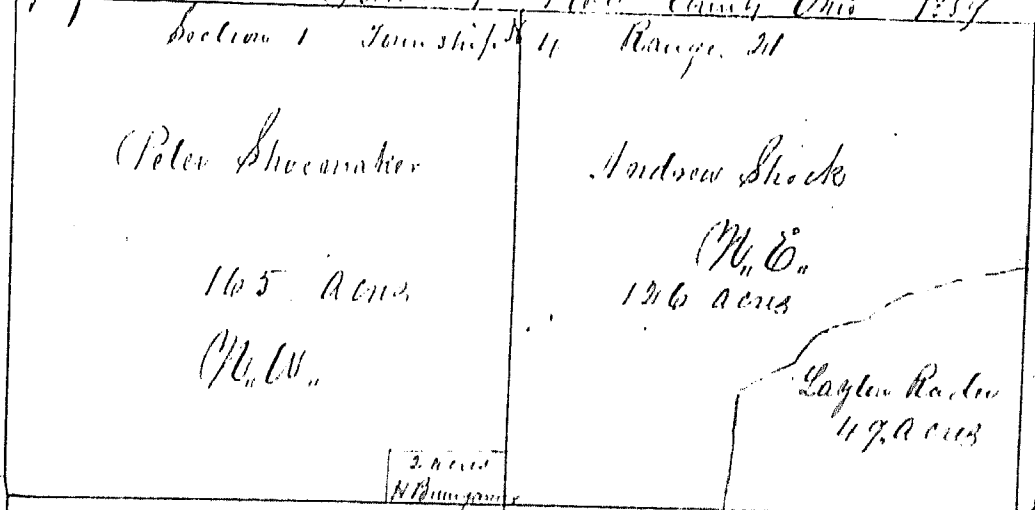 County Ohio
Section 1 Township N 4 Range 21
Peter Shoemaker
165 acres
N.W.
Andrew Shock
N.E.
126 acres
Layton Rader
47 acres
2 acres